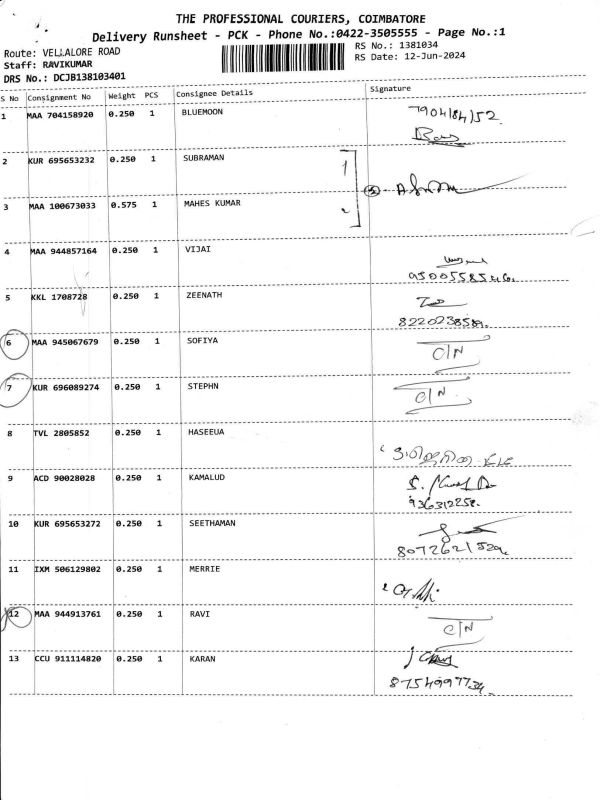 THE PROFESSIONAL COURIERS, COIMBATORE
Delivery Runsheet - PCK - Phone No.:0422-3505555 - Page No.:1
Route: VELLALORE ROAD
RS No.: 1381034
Staff: RAVIKUMAR
RS Date: 12-Jun-2024
DRS No.: DCJB138103401
S No Consignment No Weight PCS Consignee Details Signature
1 MAA 704158920 0.250 1 BLUEMOON
2 KUR 695653232 0.250 1 SUBRAMAN 1
3 MAA 100673033 0.575 1 MAHES KUMAR 2
4 MAA 944857164 0.250 1 VIJAI
5 KKL 1708728 0.250 1 ZEENATH
8220238589.
6 MAA 945067679 0.250 1 SOFIYA C/N
7 KUR 696089274 0.250 1 STEPHN C/N
8 TVL 2805852 0.250 1 HASEEUA
9 ACD 90028028 0.250 1 KAMALUD
936312258.
10 KUR 695653272 0.250 1 SEETHAMAN
11 IXM 506129802 0.250 1 MERRIE
12 MAA 944913761 0.250 1 RAVI C/N
13 CCU 911114820 0.250 1 KARAN
8754997734